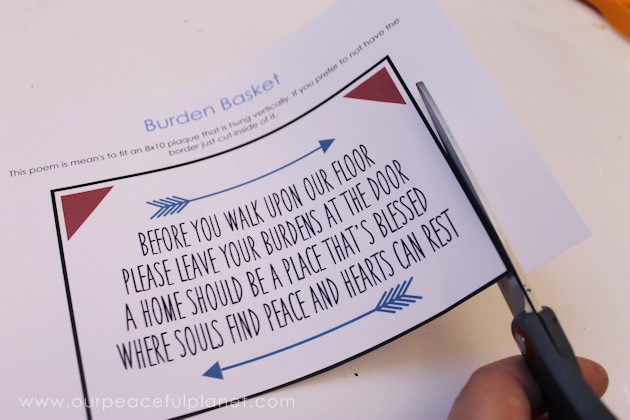 Burden Basket
This poem is mean's to fit an 8x10 plaque that is hung vertically. If you prefer to not have the
border just cut inside of it.
BEFORE YOU WALK UPON OUR FLOOR
PLEASE LEAVE YOUR BURDENS AT THE DOOR
A HOME SHOULD BE A PLACE THAT'S BLESSED
WHERE SOULS FIND PEACE AND HEARTS CAN REST
www.ourpeacefulplanet.com